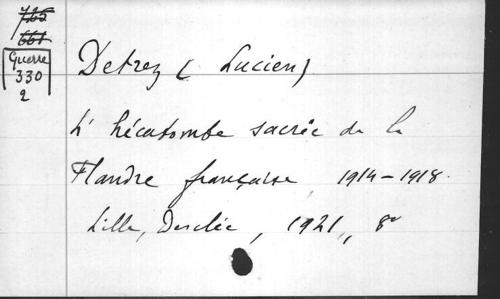 765
661
Guerre
330
2
Detrez (Lucien)
L'hécatombe sacrée de la
Flandre française 1914-1918.
Lille, Desclée, 1921, 8°